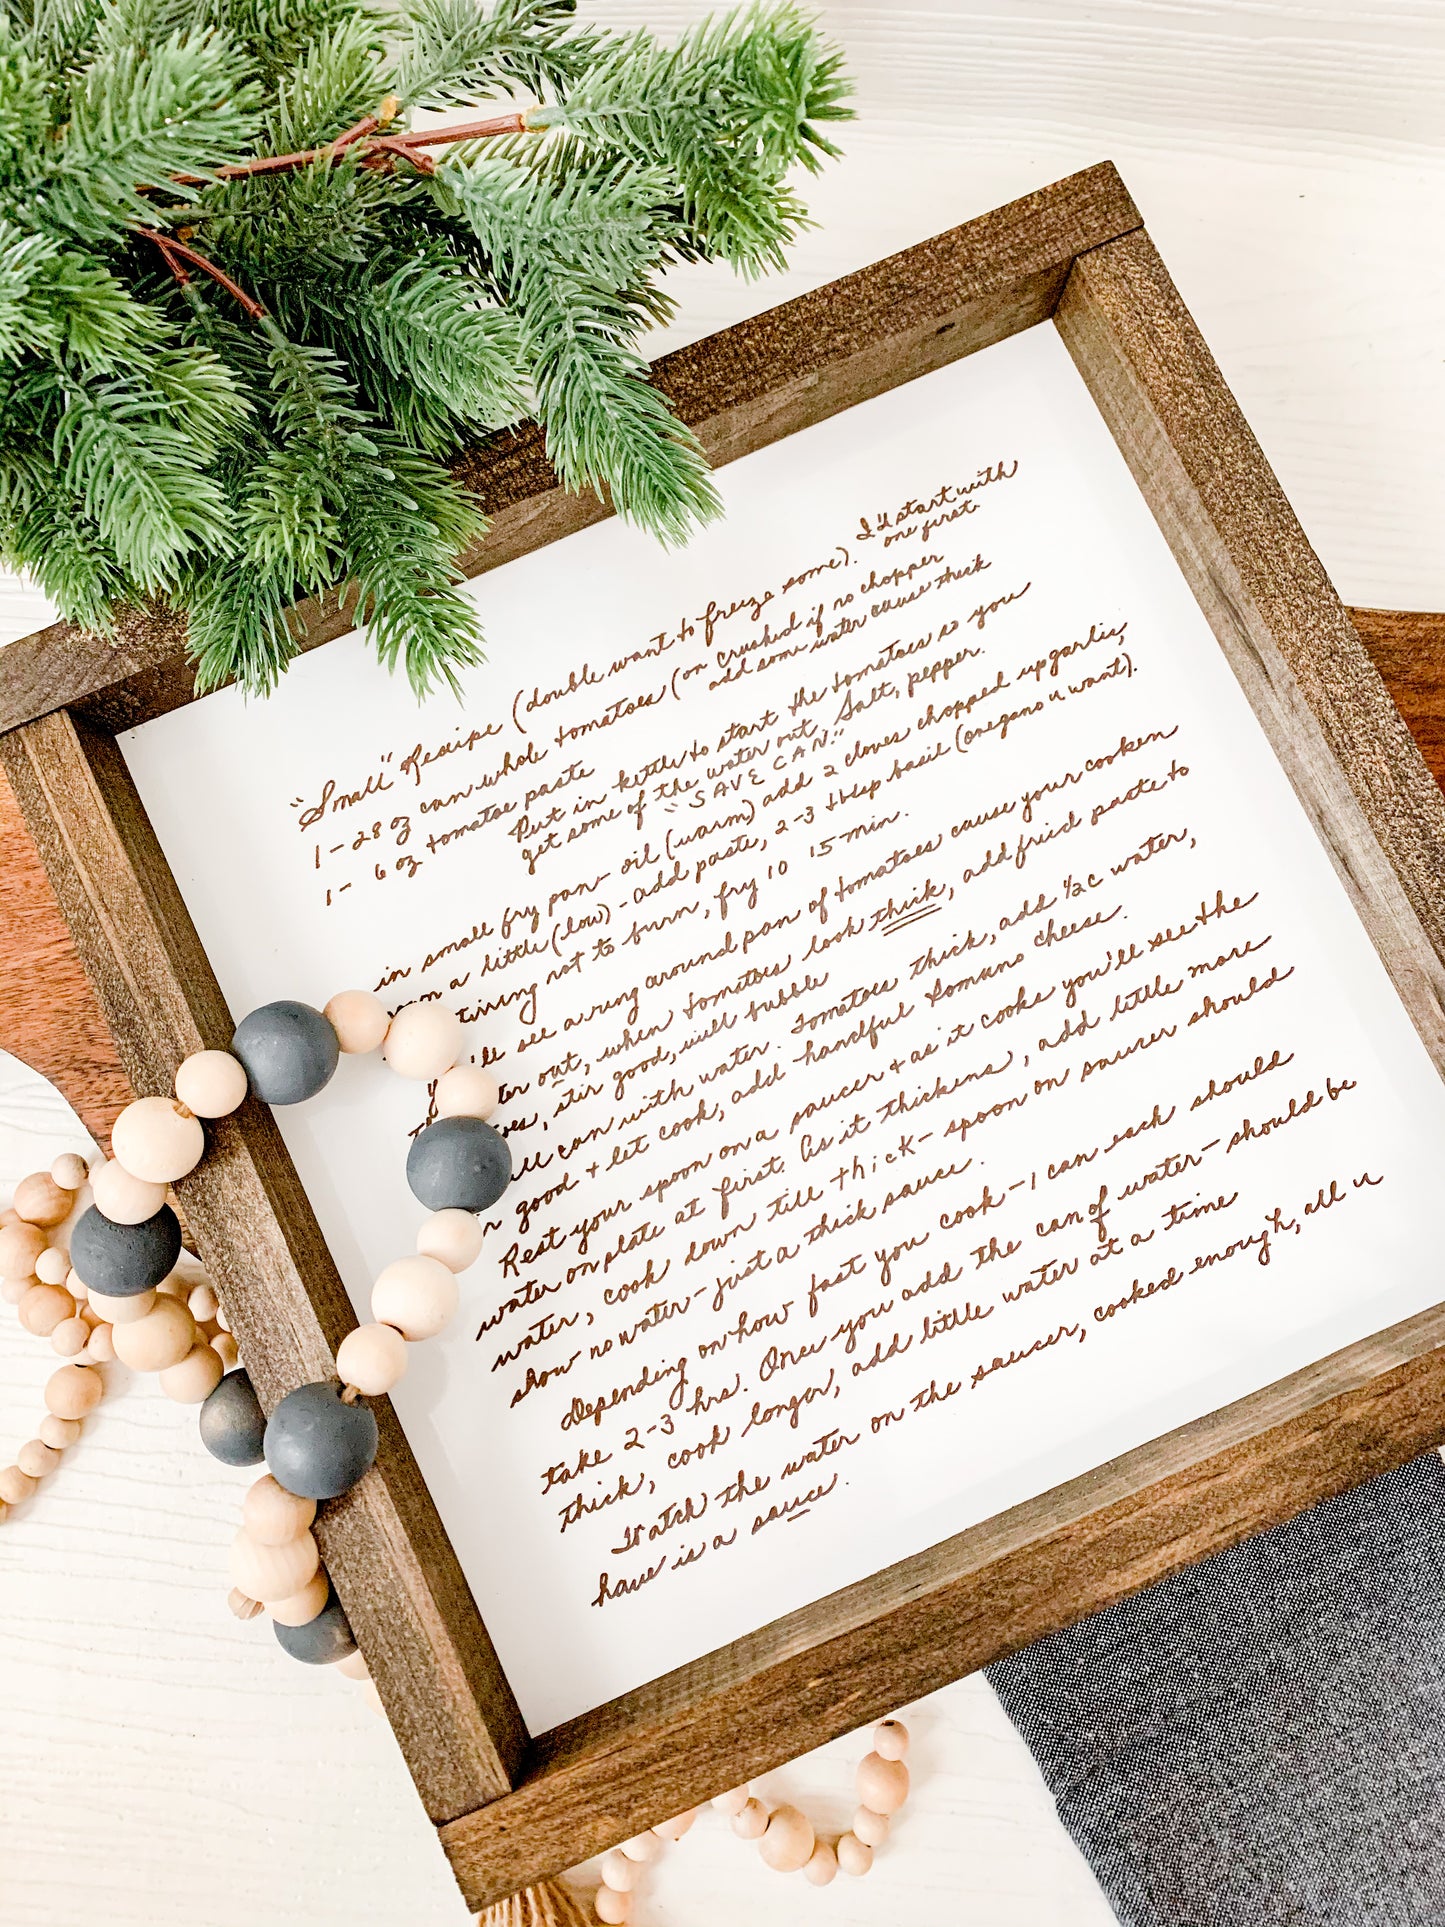 "Small" Recipe (double want to freeze some). I'd start with
one first.
1-28 oz can whole tomatoes (or crushed if no chopper
add some water cause thick
1- 6 oz tomatoe paste
Put in kettle to start the tomatoes so you
get some of the water out. Salt, pepper.
"SAVE CAN."
in small fry pan - oil (warm) add 2 cloves chopped up garlic,
a little (low) - add paste, 2-3 tblsp basil (oregano u want).
stirring not to burn, fry 10 15-min.
see a ring around pan of tomatoes cause your cooken
out, when tomatoes look thick, add fried paste to
stir good, will bubble
can with water. Tomatoes thick, add 1/2 c water,
good + let cook, add handful Romano cheese.
Rest your spoon on a saucer + as it cooks you'll see the
water on plate at first. As it thickens, add little more
water, cook down till thick - spoon on saucer should
show no water - just a thick sauce.
Depending on how fast you cook - 1 can each should
take 2-3 hrs. Once you add the can of water - should be
thick, cook longer, add little water at a time
Watch the water on the saucer, cooked enough, all u
have is a sauce.